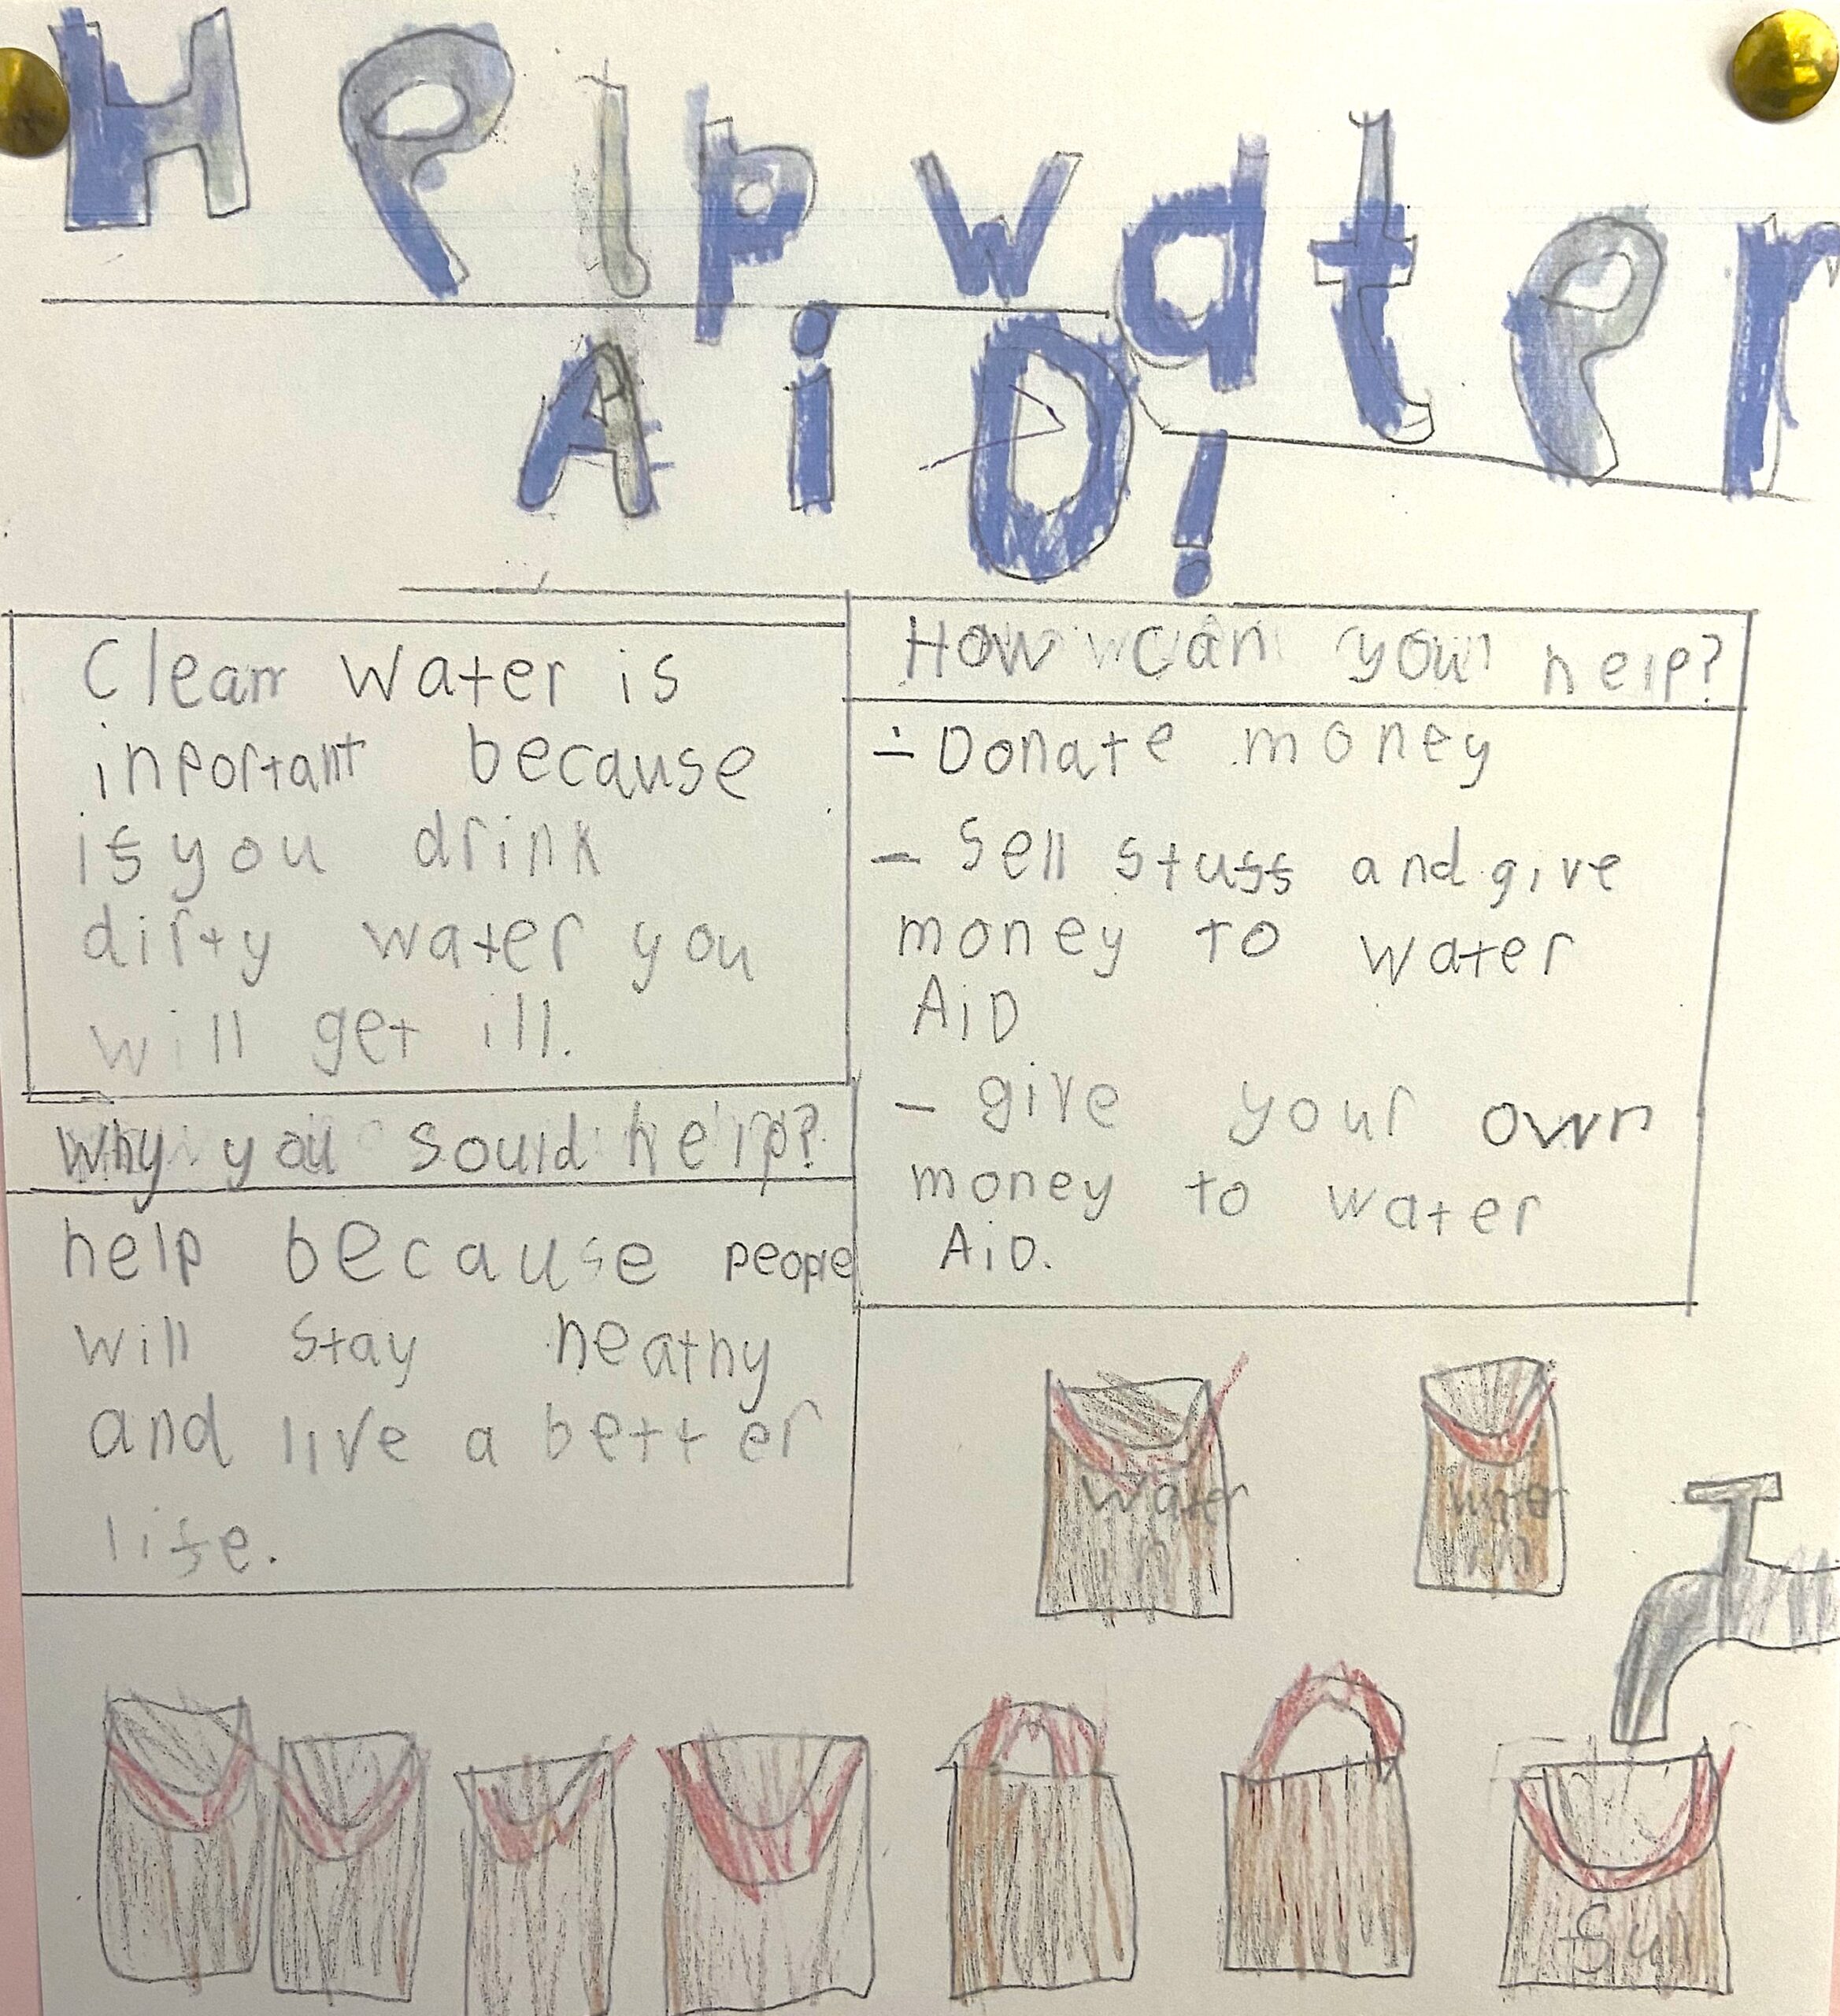 Help water
AiD!
Clean water is
inportant because
if you drink
dirty water you
will get ill.
Why you sould help?
help because people
will stay heathy
and live a better
life.
How can you help?
- Donate money
- Sell stuff and give
money to water
AiD
- give your own
money to water
AiD.
water
in
water
in